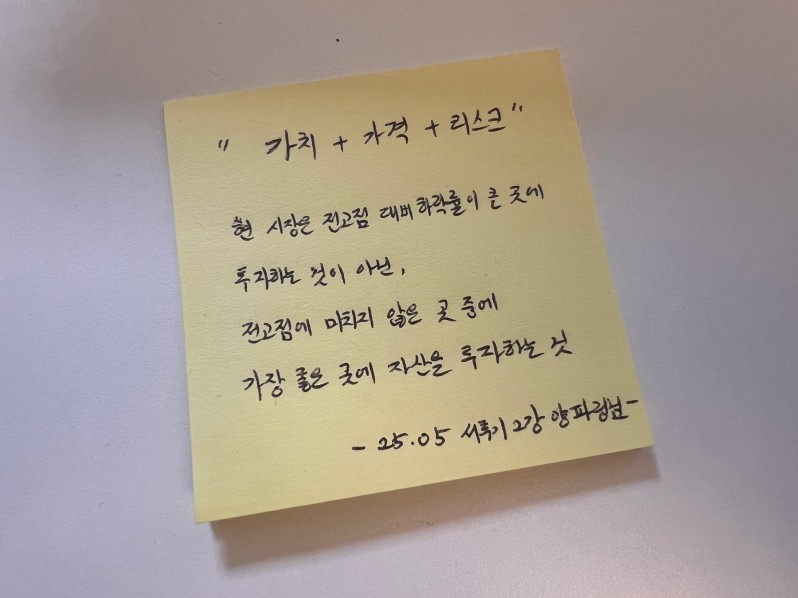 " 가치 + 가격 + 리스크 "
현 시장은 전고점 대비 하락률이 큰 곳에
투자하는 것이 아닌,
전고점에 미치지 않은 곳 중에
가장 좋은 곳에 자산을 투자하는 것
- 25.05 서투기 2강 양파링님 -